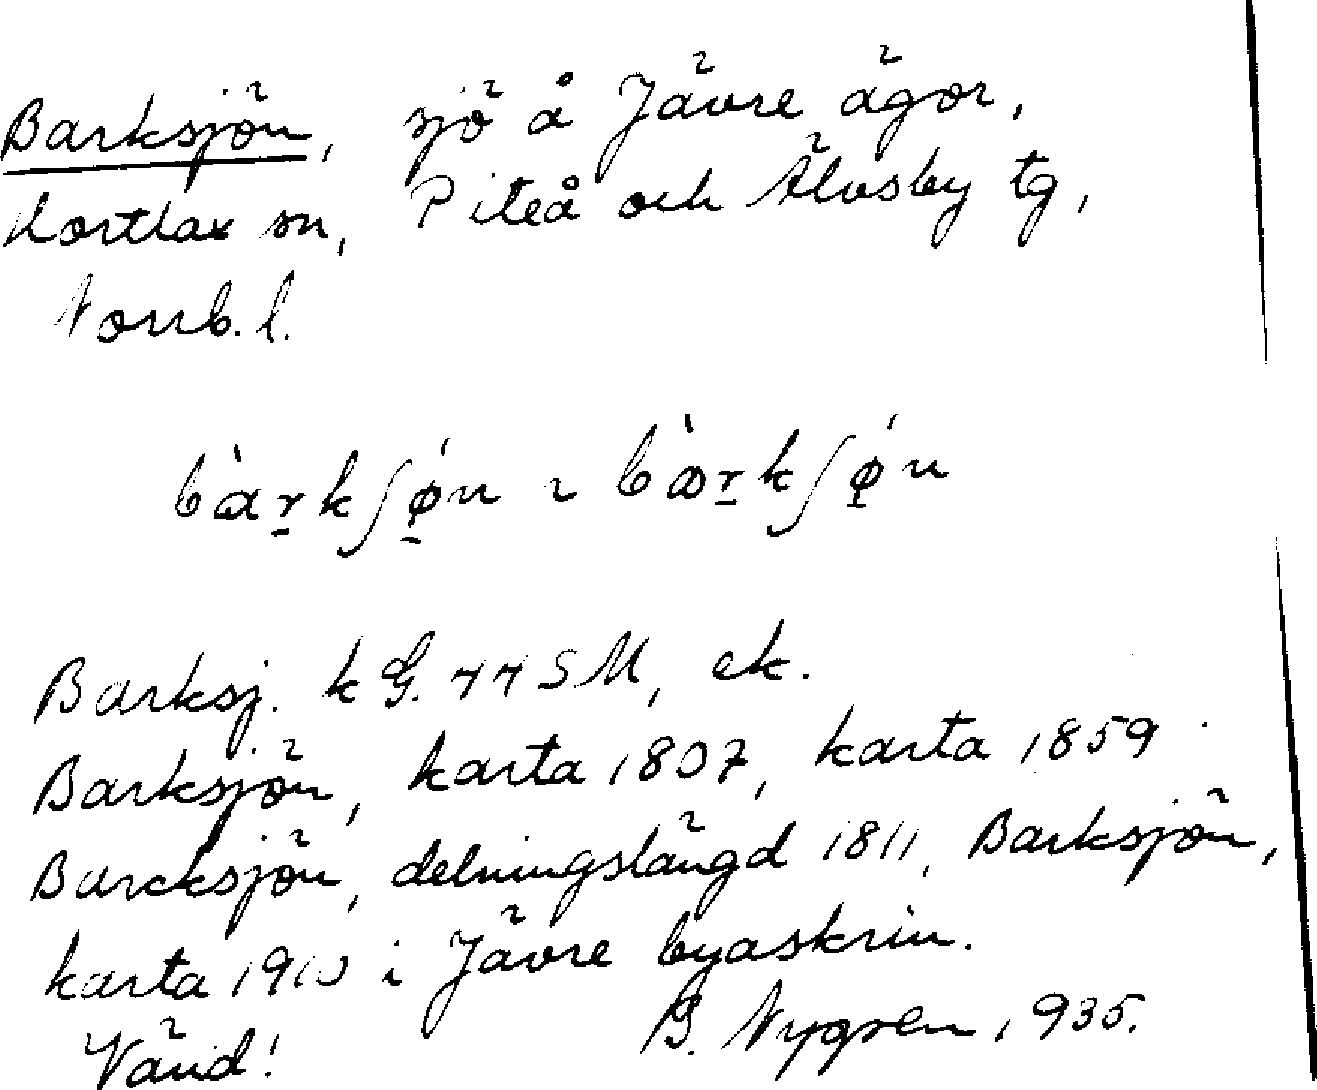 Barksjön, sjö å Jävre ägor,
Hortlax sn, Piteå och Älvsby tg,
Norrb. l.
bàr̠kʃǿ̠n ~ bàr̠kʃǿ̠n
Barksj. kG. 44 SM, ek.
Barksjön, karta 1807, karta 1859
Barcksjön, delningslängd 1811, Barksjön,
karta 1910 i Jävre byaskrin.
Vänd! B. Nygren, 1935.